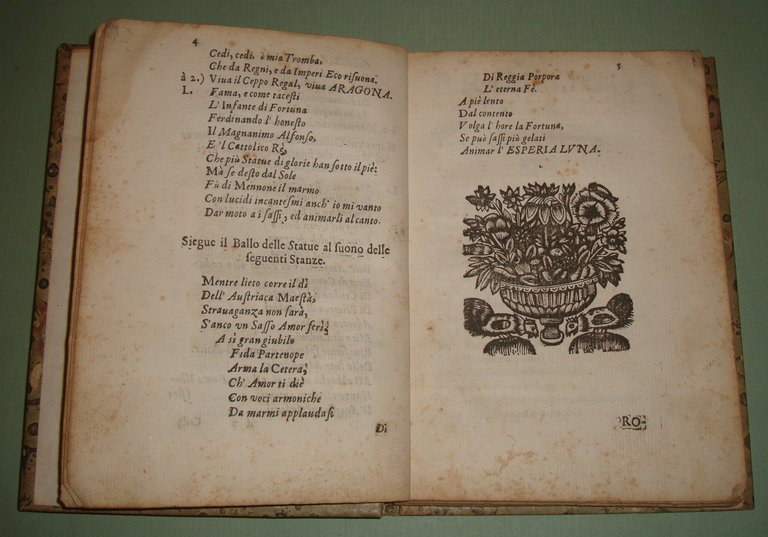 4
Cedi, cedi, ò mia Tromba,
Che da Regni, e da Imperi Eco risuona.
à 2.) Viua il Ceppo Regal, viua ARAGONA.
L. Fama, e come tacesti
L'Infante di Fortuna
Ferdinando l'honesto
Il Magnanimo Alfonso,
E 'l Cattolico Rè,
Che più Statue di glorie han sotto il piè:
Mà se desto dal Sole
Fù di Mennone il marmo
Con lucidi incantesmi anch' io mi vanto
Dar moto a i sassi, ed animarli al canto.
Siegue il Ballo delle Statue al suono delle
seguenti Stanze.
Mentre lieto corre il dì
Dell' Austriaca Maestà,
Strauaganza non sarà,
S'anco vn Sasso Amor ferì,
A sì gran giubilo
Fida Partenope
Arma la Cetera,
Ch' Amor ti diè
Con voci armoniche
Da marmi applaudasi
Di
5
Di Reggia Porpora
L' eterna Fè.
A piè lento
Dal contento
Volga l' hore la Fortuna,
Se può sassi più gelati
Animar l' ESPERIA LVNA.
PRO-